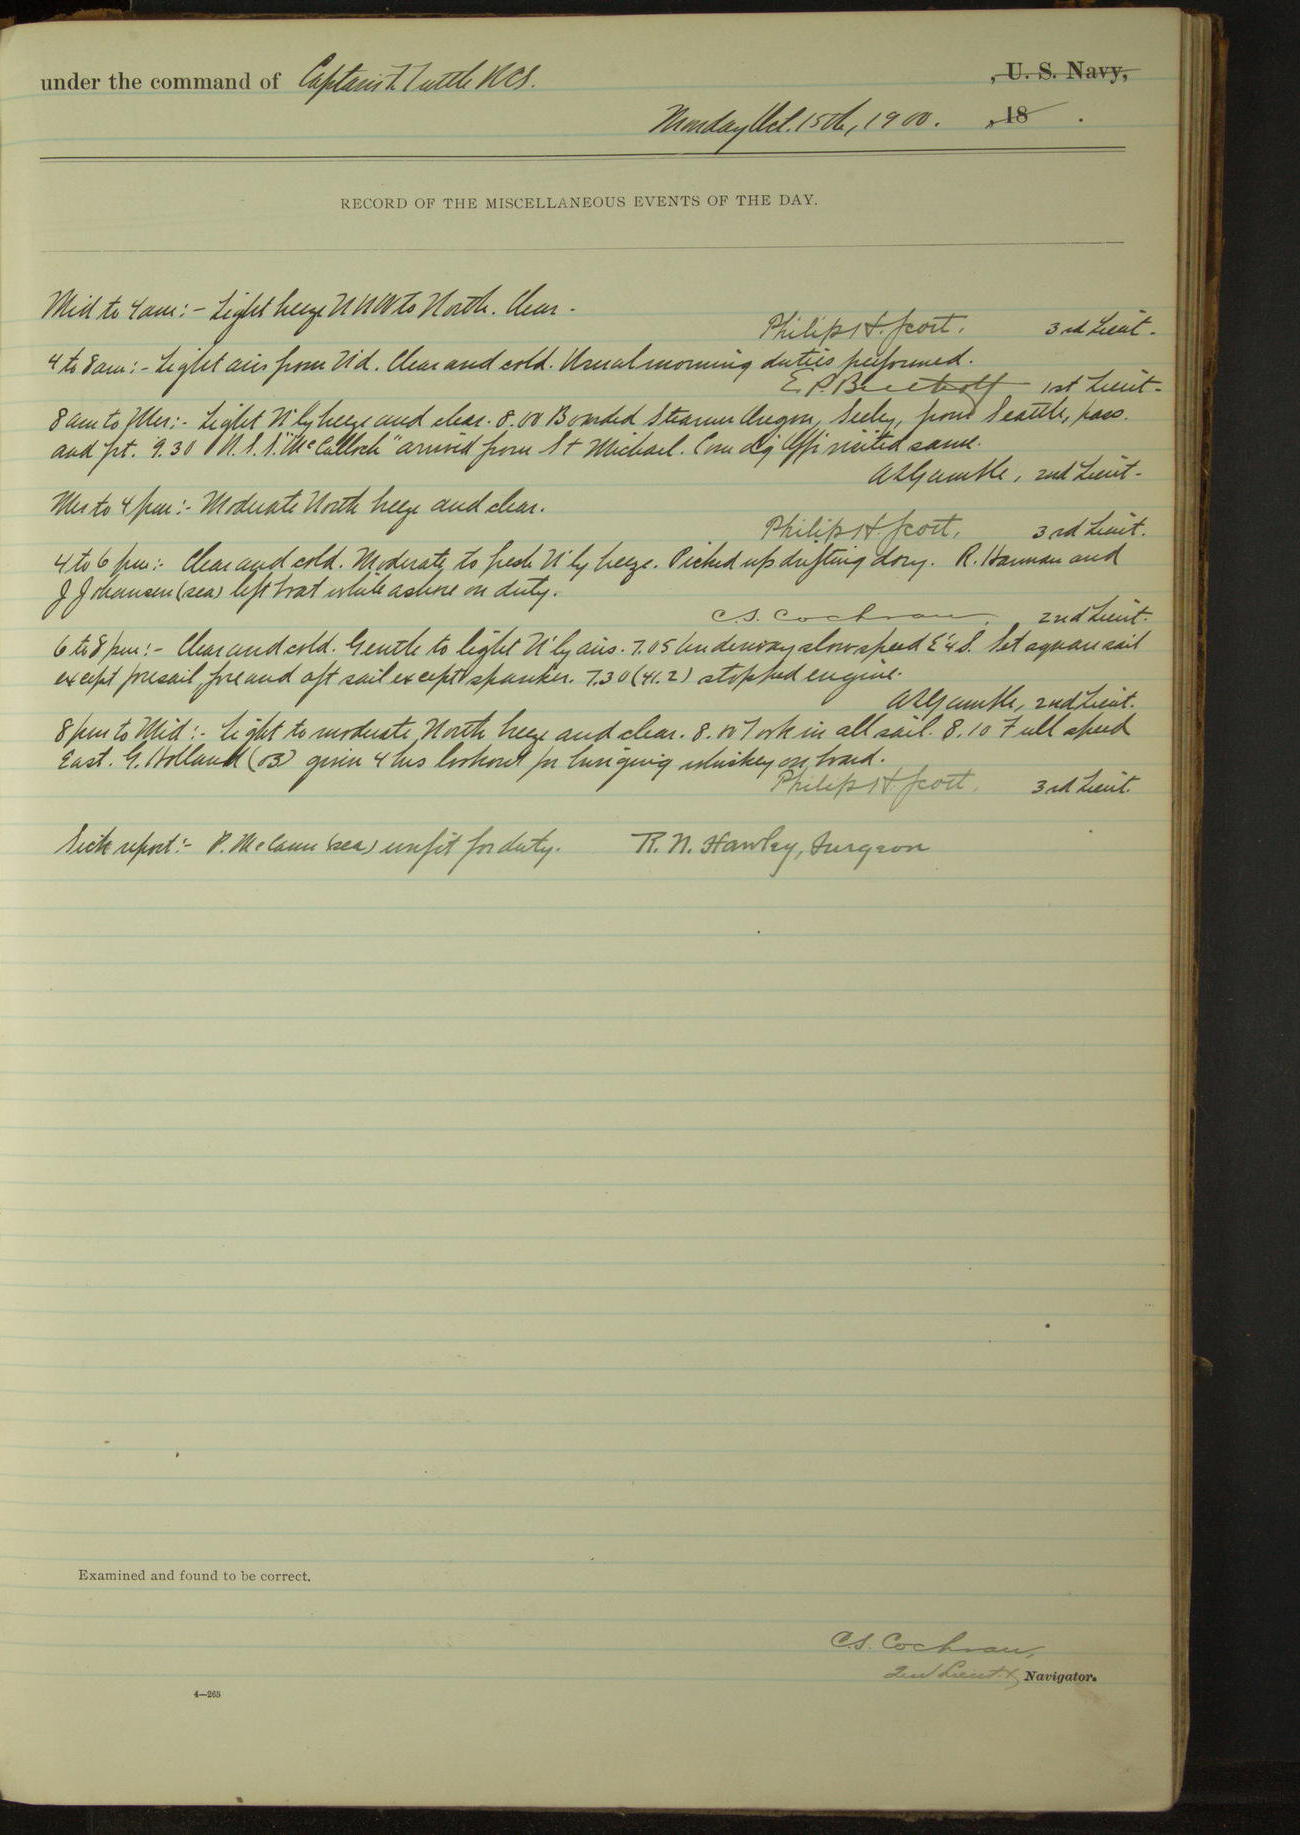 under the command of Captain F. Tuttle RCS. , U. S. Navy,
Monday Oct. 15th, 1900. , 18 .
RECORD OF THE MISCELLANEOUS EVENTS OF THE DAY.
Mid to 4 am:- Light breeze NNW to North. Clear.
Philip H. Scott, 3rd Lieut.
4 to 8 am:- Light airs from N'd. Clear and cold. Usual morning duties performed.
E. P. Bertholf 1st Lieut.
8 am to Mer:- Light N'ly breeze and clear. 8.00 Boarded Steamer Oregon, Seeley, from Seattle, pass.
and frt. 9.30 R.S.S. "McCulloch" arrived from St Michael. Comd'g Offr visited same.
A. Gamble, 2nd Lieut.
Mer to 4 pm:- Moderate North breeze and clear.
Philip H. Scott, 3rd Lieut.
4 to 6 pm:- Clear and cold. Moderate to fresh N'ly breeze. Picked up drifting dory. R. Harman and
J Johansen (sea) left boat while ashore on duty.
C.S. Cochran, 2nd Lieut.
6 to 8 pm:- Clear and cold. Gentle to light N'ly airs. 7.05 Underway slow speed E¼S. Set square sail
except foresail, fore and aft sail except spanker. 7.30 (41.2) stopped engine.
A. Gamble, 2nd Lieut.
8 pm to Mid:- Light to moderate North breeze and clear. 8.00 Took in all sail. 8.10 Full speed
East. G. Holland (03) given 4 hrs lookout for bringing whiskey on board.
Philip H. Scott, 3rd Lieut.
Sick report:- P. McCann (sea) unfit for duty. R. N. Hawley, Surgeon
Examined and found to be correct.
C.S. Cochran,
2nd Lieut. & Navigator.
4—265